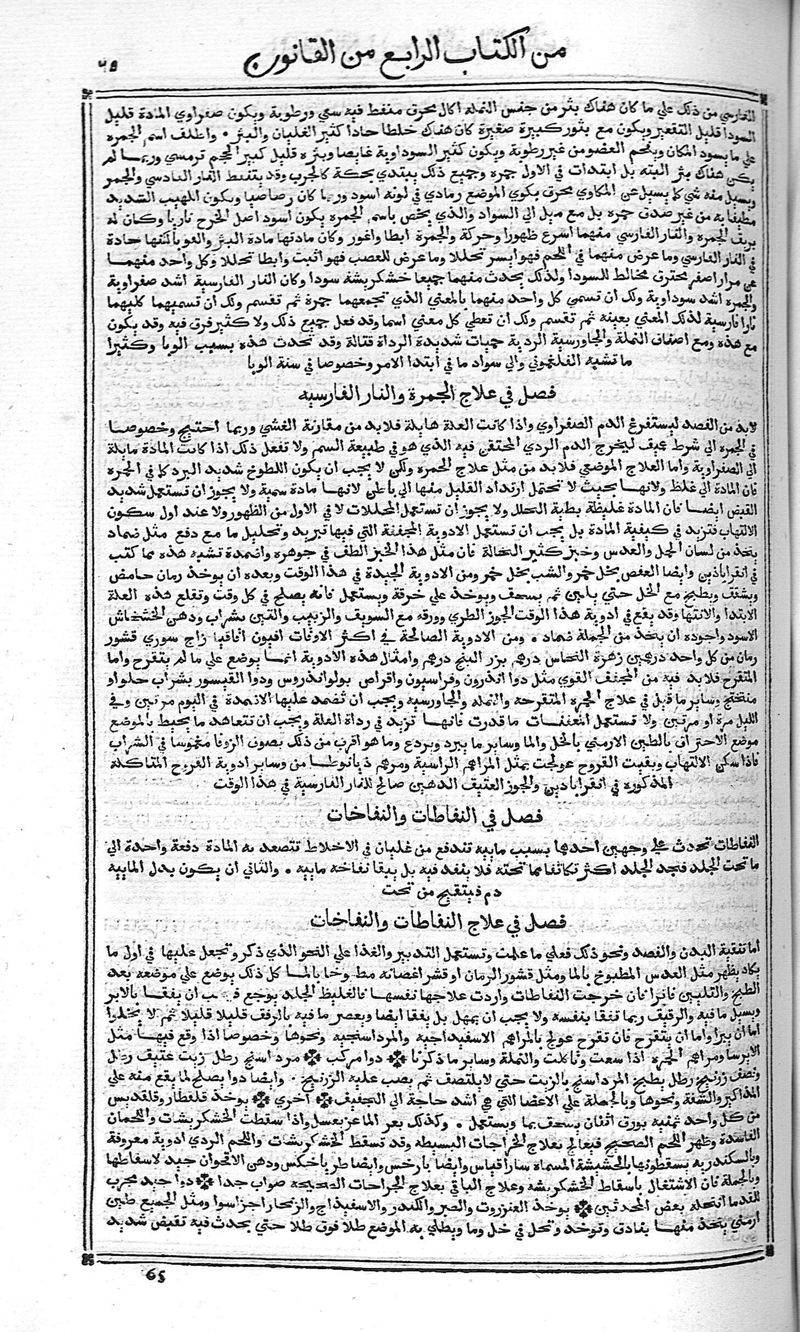 من الكتاب الرابع من القانون
٦٥
الفارسي من ذلك علي ما كان هناك بثر من جنس النملة اكال محرق منفط فيه سعي ورطوبة ويكون صفراوي المادة قليل
السودا قليل التقعير ويكون مع بثور كبيرة صغيرة كان هناك خلطا حادا كثير الغليان والبثر واطلف اسم الجمرة
علي ما يسود المكان ويفحم العضو من غير رطوبة ويكون كثير السوداوية غايصا وبثره قليل كبير الحجم ترمسي وربما لم
يكن هناك بثر البته بل ابتدات في الاول جمرة وجميع ذلك يبتدي بحكة كالجرب وقد يتنفط النار الفارسي والجمر
ويسيل منه شي كما يسيل عن المكاوي محرق يكوي الموضع رمادي في لونه اسود وربما كان رصاصيا ويكون اللهيب الشديد
مطيفا به من غير صدف حمرة بل مع ميل الي السواد والذي يخص باسم الجمرة يكون اسود اصل الخرح ناريا وكان له
بريف الجمرة والنار الفارسي منهما اسرع ظهورا وحركة والجمرة ابطا واغور وكان مادتها مادة البثر والقوبا لكنها حادة
في النار الفارسي وما عرض منهما في اللحم فهو ايسر تحللا وما عرض للعصب فهو اثبت وابطا تحللا وكل واحد منهما
عن مرار اصفر محترق مخالط للسودا ولذلك يحدث منهما جميعا خشكريشة سودا وكان النار الفارسية اشد صفراوية
والجمرة اشد سوداوية ولك ان تسمي كل واحد منهما بالمعني الذي تجمعهما جمرة ثم تقسم ولك ان تسميهما كليهما
نارا فارسية لذلك المعني بعينه ثم تقسم ولك ان تعطي كل معني اسما وقد فعل جميع ذلك ولا كثير فرق فيه وقد يكون
مع هذه ومع اصناف النملة والجاورسية الردية حميات شديدة الرداة قتالة وقد تحدث هذه بسبب الوبا وكثيرا
ما تشبه الفلغموني والي سواد ما في ابتدا الامر وخصوصا في سنة الوبا
فصل في علاج الجمرة والنار الفارسيه
لابد من الفصد ليستفرغ الدم الصفراوي واذا كانت العلة هايلة فلابد من مقارنة الغشي وربما احتيج وخصوصا
في الجمرة الي شرط عميف ليخرج الدم الردي المحتقن فيه الذي هو في طبيعة السم ولا تفعل ذلك اذا كانت المادة مايلة
الي الصفراوية واما العلاج الموضعي فلابد من مثل علاج الحمرة ولكن لا يجب ان يكون اللطوخ شديد البرد كما في الحمرة
فان المادة الي غلظ ولانها بحيث لا تحتمل ارتداد القليل منها الي باطن لانها مادة سمية ولا يجوز ان تستعمل شديد
القبض ايضا فان المادة غليظة بطية التحلل ولا يجوز ان تستعمل المحللات لا في الاول من الظهور ولا عند اول سكون
الالتهاب فتزيد في كيفية المادة بل يجب ان تستعمل الادوية المجففة التي فيها تبريد وتحليل ما مع دفع مثل ضماد
يتخذ من لسان الحمل والعدس وخبز كثير النخالة فان مثل هذا الخبز الطف في جوهره واضمدة تشبه هذه مما كتب
في اقراباذين وايضا العفص بخل خمر والشب بخل خمر ومن الادوية الجيدة في هذا الوقت وبعده ان يوخذ رمان حامض
ويشقف ويطبخ مع الخل حتي يلين ثم يسحف ويوخذ علي خرقة ويستعمل فانه يصلح في كل وقت وتقلع هذه العلة
الابتدا والانتها وقد يقع في ادوية هذا الوقت الجوز الطري وورقه مع السويف والزبيب والتين بشراب ودهن الخشخاش
الاسود واجوده ان يتخذ من الجملة ضماد ومن الادوية الصالحة في اكثر الاوقات افيون اقاقيا زاج سوري قشور
رمان من كل واحد درهمين زهرة النحاس درهم بزر البنج درهم وامثال هذه الادوية انما يوضع علي ما لم يتقرح واما
المتقرح فلابد فيه من المجفف القوي مثل دوا اندرون وفراسيون واقراص بولواندروس ودوا القيسور بشراب حلو او
منفختج وساير ما قيل في علاج الحمرة المتقرحه والنمله والجاورسية ويجب ان تضمد عليها الاضمدة في اليوم مرتين وفي
الليل مرة او مرتين ولا تستعمل المعفنات ما قدرت فانها تزيد في رداة العلة ويجب ان تتعاهد ما يحيط بالموضع
موضع الاحتراف بالطين الارمني بالخل والما وساير ما يبرد ويردع وما هو اقرب من ذلك بصوف الزوفا مغموسا في الشراب
فاذا سكن الالتهاب وبقيت القروح عولجت بمثل المراهم الراسية ومرهم ذيانوطا من وساير ادوية القروح المتاكلة
المذكوره في اقراباذين والجوز العتيف الدهين صالح للنار الفارسية في هذا الوقت
فصل في النفاطات والنفاخات
النفاطات تحدث علي وجهين احدهما بسبب ماييه تندفع من غليان في الاخلاط تتصعد به المادة دفعة واحدة الي
ما تحت الجلد فتجد الجلد اكثر تكاثفا مما تحته فلا ينفذ فيه بل يبقا نفاخة ماييه والثاني ان يكون بدل المايية
دم فيتقيح من تحت
فصل في علاج النفاطات والنفاخات
اما تنقية البدن والفصد ونحو ذلك فعلي ما علمت وتستعمل التدبير والغذا علي النحو الذي ذكر وتجعل عليها في اول ما
يكاد يظهر مثل العدس المطبوخ بالما ومثل قشور الرمان او قشر اغصانه مطبوخا بالما كل ذلك يوضع علي موضعه بعد
الطبخ والتليين فاترا فان خرجت النفاطات واردت علاجها نفسها فالغليظ الجلد يوجع فيجب ان يفقا بالابر
ويسيل ما فيه والرقيف ربما تفقا بنفسه ولا يجب ان يمهل بل يفقا ايضا ويعصر ما فيه بالرفق قليلا قليلا ثم لا يخلوا
اما ان يبرا واما ان يتقرح فان تقرح عولج بالمراهم الاسفيداجيه والمرداسنجيه ونحوها وخصوصا اذا وقع فيها مثل
الايرسا ومراهم الجمرة اذا سعت وتاكلت والنملة وساير ما ذكرنا ✤ دوا مركب ✤ مرداسنج رطل زيت عتيف رطل
ونصف زرنيخ رطل يطبخ المرداسنج بالزيت حتي لا يلتصف ثم يصب عليه الزرنيخ وايضا دوا يصلح لما يقع منه علي
المذاكير والشفة ونحوها وبالجملة علي الاعضا التي هي اشد حاجة الي التجفيف ✤ اخري ✤ يوخذ قلقطار وقلقديس
من كل واحد ثمنيه بورق اثنان يسحف بما ويستعمل وكذلك بعر الماعز بعسل واذا سقطت الخشكريشات واللحمان
الفاسدة وظهر اللحم الصحيح فيعالج بعلاج الخراجات البسيطة وقد تسقط الخشكريشات واللحم الردي ادوية معروفة
وبالسكندريه يسقطونها بالحشيشة المسماه ساراقياس وايضا بارخس وايضا طراخكس ودهن الاقحوان جيد لاسقاطها
وبالجملة فان الاشتغال باسقاط الخشكريشه وعلاج الباقي بعلاج الجراحات الصحيحه صواب جدا ✤ دوا جيد مجرب
للقدما انتحله بعض المحدثين ✤ يوخذ العنزروت والصبر والكندر والاسفيداج والزنجار اجزا سوا ومثل الجميع طين
ارمني يتخذ منها بنادق وتوخذ وتحل في خل وما ويطلي به الموضع طلا فوق طلا حتي يحدث فيه تقبض شديد
65